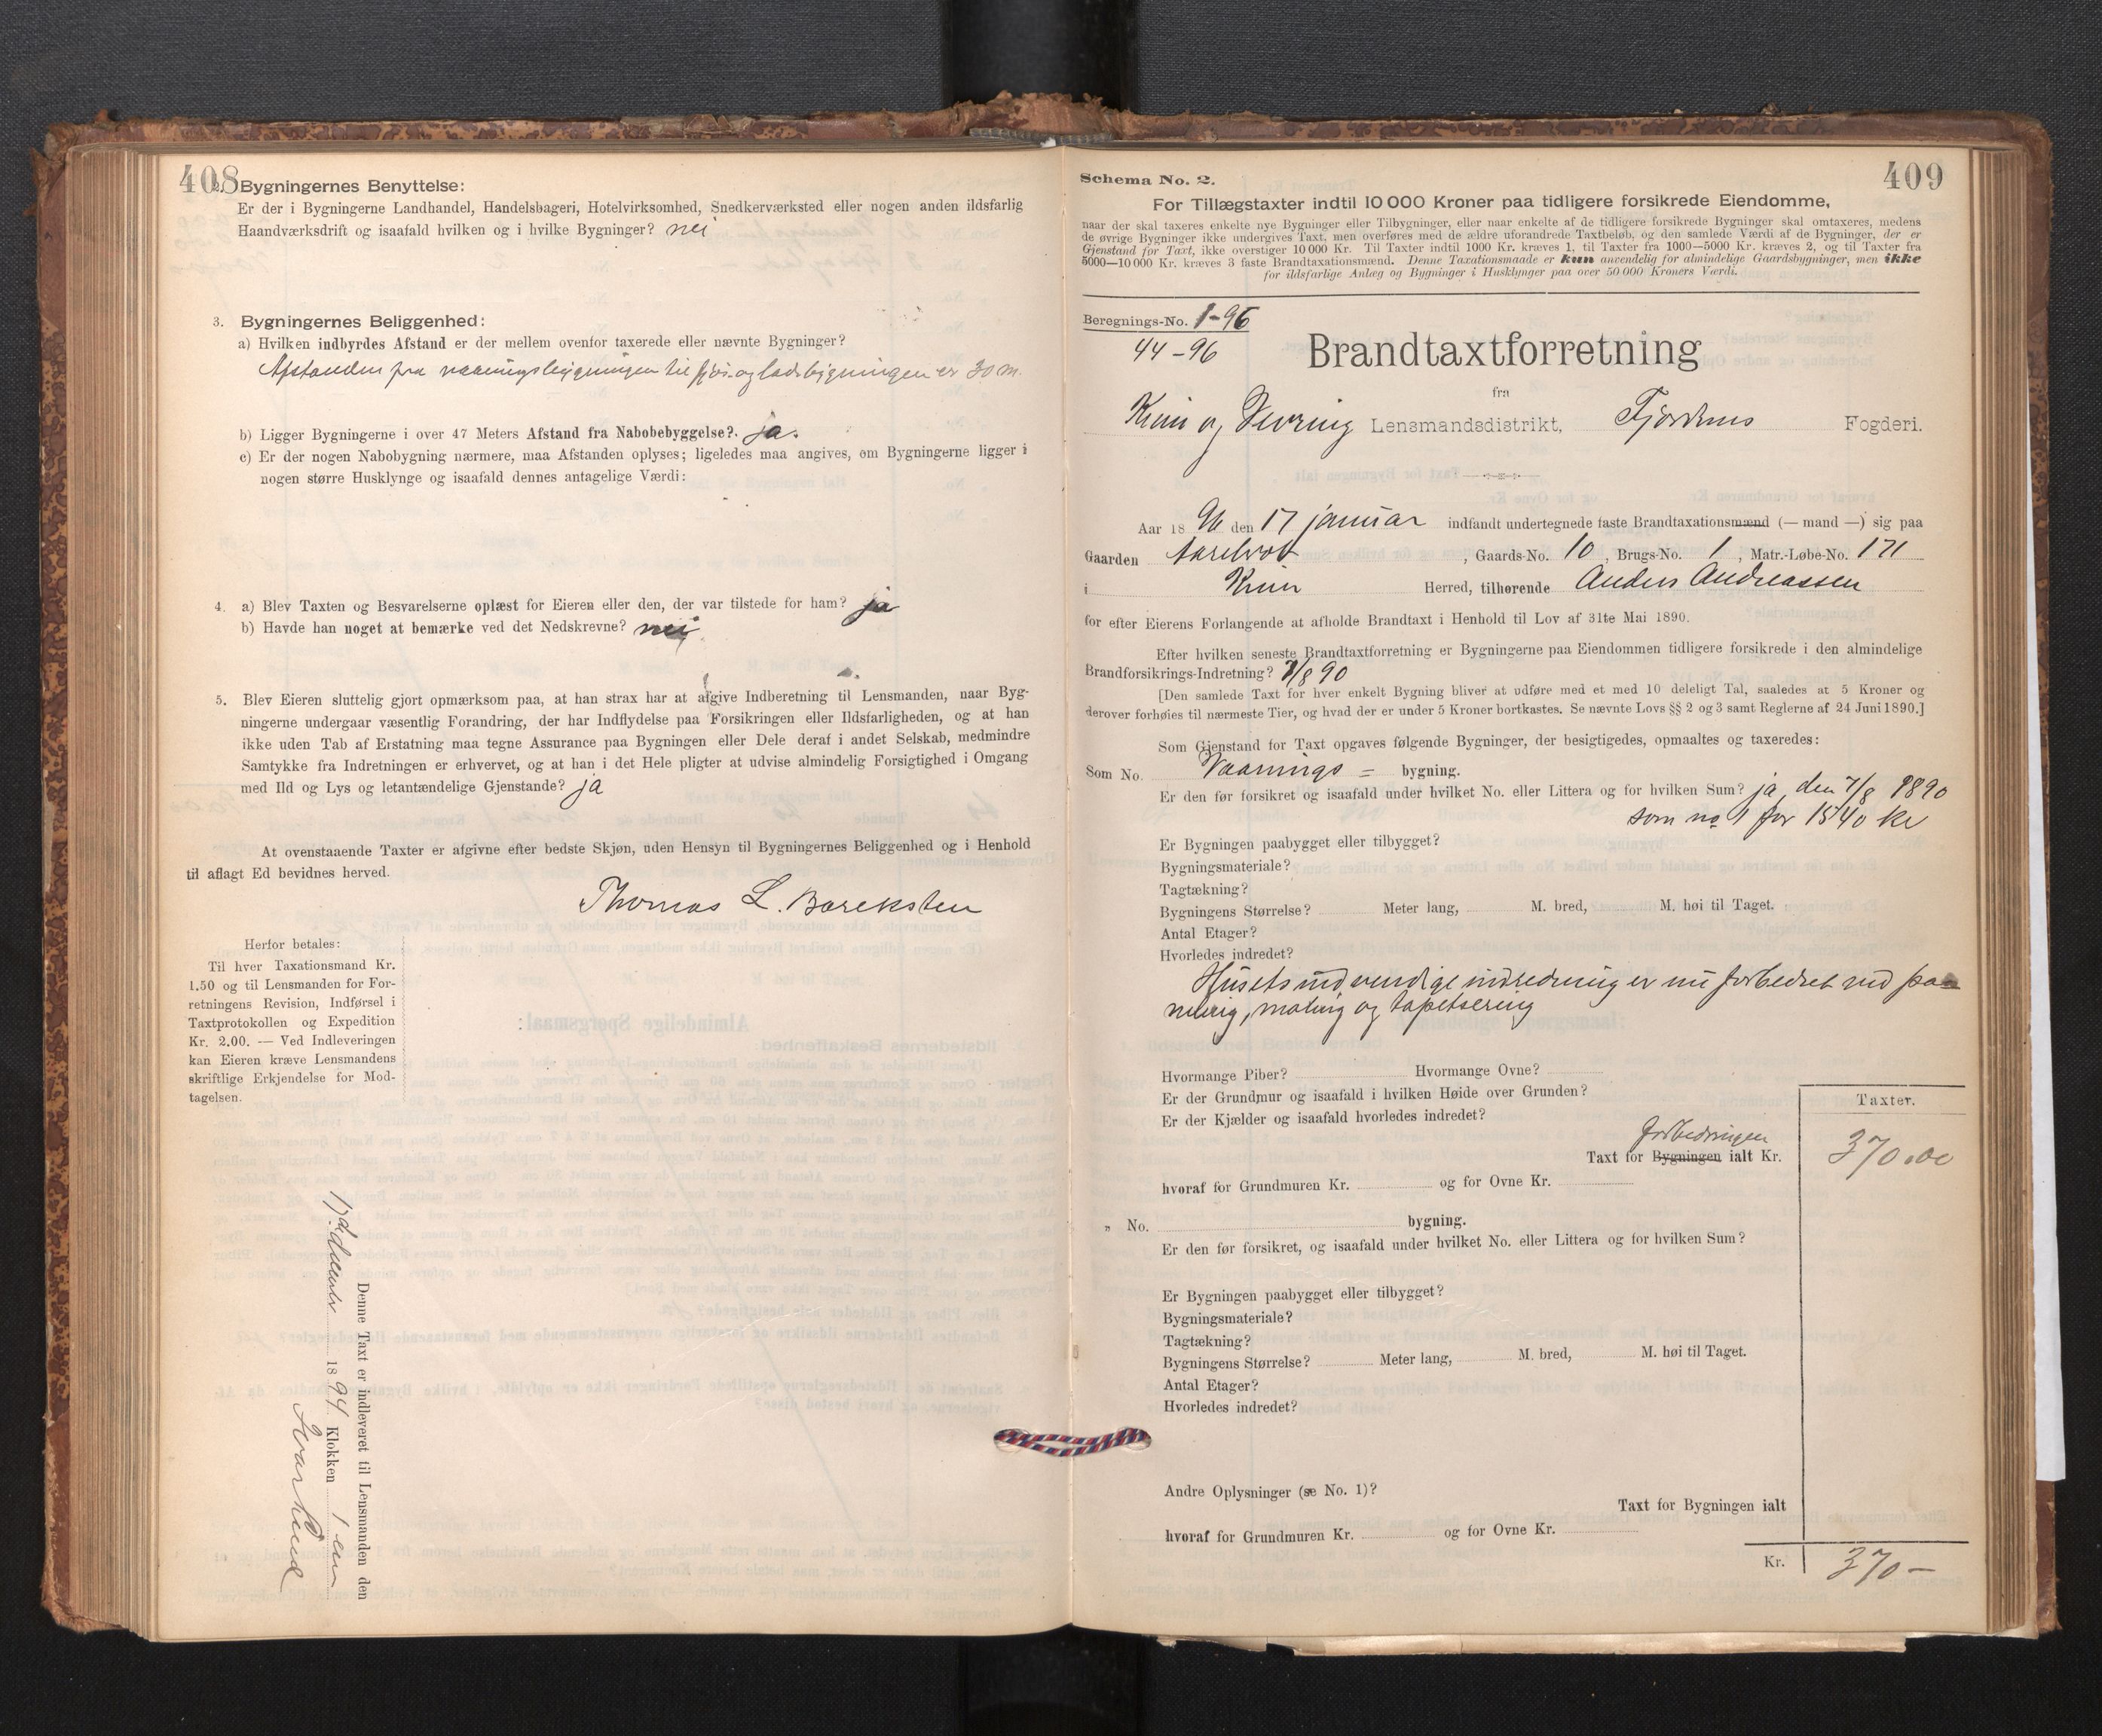 408
2. Bygningernes Benyttelse:
Er der i Bygningerne Landhandel, Handelsbageri, Hotelvirksomhed, Snedkerværksted eller nogen anden ildsfarlig
Haandværksdrift og isaafald hvilken og i hvilke Bygninger? nei
3. Bygningernes Beliggenhed:
a) Hvilken indbyrdes Afstand er der mellem ovenfor taxerede eller nævnte Bygninger?
Afstanden fra vaaningsbygningen til fjøs- og ladebygningen er 30 m.
b) Ligger Bygningerne i over 47 Meters Afstand fra Nabobebyggelse? ja.
c) Er der nogen Nabobygning nærmere, maa Afstanden oplyses; ligeledes maa angives, om Bygningerne ligger i
nogen større Husklynge og isaafald dennes antagelige Værdi:
4. a) Blev Taxten og Besvarelserne oplæst for Eieren eller den, der var tilstede for ham? ja
b) Havde han noget at bemærke ved det Nedskrevne? nei
5. Blev Eieren sluttelig gjort opmærksom paa, at han strax har at afgive Indberetning til Lensmanden, naar Byg-
ningerne undergaar væsentlig Forandring, der har Indflydelse paa Forsikringen eller Ildsfarligheden, og at han
ikke uden Tab af Erstatning maa tegne Assurance paa Bygningen eller Dele deraf i andet Selskab, medmindre
Samtykke fra Indretningen er erhvervet, og at han i det Hele pligter at udvise almindelig Forsigtighed i Omgang
med Ild og Lys og letantændelige Gjenstande? ja
At ovenstaaende Taxter er afgivne efter bedste Skjøn, uden Hensyn til Bygningernes Beliggenhed og i Henhold
til aflagt Ed bevidnes herved.
Thomas L. Bareksten
Herfor betales:
Til hver Taxationsmand Kr.
1.50 og til Lensmanden for For-
retningens Revision, Indførsel i
Taxtprotokollen og Expedition
Kr. 2.00. — Ved Indleveringen
kan Eieren kræve Lensmandens
skriftlige Erkjendelse for Mod-
tagelsen.
Denne Taxt er indleveret til Lensmanden den
18 94 Klokken 1 em
409
Schema No. 2.
For Tillægstaxter indtil 10 000 Kroner paa tidligere forsikrede Eiendomme,
naar der skal taxeres enkelte nye Bygninger eller Tilbygninger, eller naar enkelte af de tidligere forsikrede Bygninger skal omtaxeres, medens
de øvrige Bygninger ikke undergives Taxt, men overføres med de ældre uforandrede Taxtbeløb, og den samlede Værdi af de Bygninger, der er
Gjenstand for Taxt, ikke overstiger 10 000 Kr. Til Taxter indtil 1000 Kr. kræves 1, til Taxter fra 1000—5000 Kr. kræves 2, og til Taxter fra
5000—10 000 Kr. kræves 3 faste Brandtaxationsmænd. Denne Taxationsmaade er kun anvendelig for almindelige Gaardsbygninger, men ikke
for ildsfarlige Anlæg og Bygninger i Husklynger paa over 50 000 Kroners Værdi.
Beregnings-No. 1-96
44-96
Brandtaxtforretning
fra
Kinn og Vevring Lensmandsdistrikt, Fjordenes Fogderi.
Aar 18 96 den 17 januar indfandt undertegnede faste Brandtaxationsmænd (— mand —) sig paa
Gaarden Aarebrot, Gaards-No. 10, Brugs-No. 1, Matr.-Løbe-No. 171
i Kinn Herred, tilhørende Anders Andreassen
for efter Eierens Forlangende at afholde Brandtaxt i Henhold til Lov af 31te Mai 1890.
Efter hvilken seneste Brandtaxtforretning er Bygningerne paa Eiendommen tidligere forsikrede i den almindelige
Brandforsikrings-Indretning? 7/8 90
[Den samlede Taxt for hver enkelt Bygning bliver at udføre med et med 10 deleligt Tal, saaledes at 5 Kroner og
derover forhøies til nærmeste Tier, og hvad der er under 5 Kroner bortkastes. Se nævnte Lovs §§ 2 og 3 samt Reglerne af 24 Juni 1890.]
Som Gjenstand for Taxt opgaves følgende Bygninger, der besigtigedes, opmaaltes og taxeredes:
Som No. Vaanings = bygning.
Er den før forsikret og isaafald under hvilket No. eller Littera og for hvilken Sum? ja, den 7/8 1890
som no 1 for 1540 kr
Er Bygningen paabygget eller tilbygget?
Bygningsmateriale?
Tagtækning?
Bygningens Størrelse? Meter lang, M. bred, M. høi til Taget.
Antal Etager?
Hvorledes indredet?
Husets indvendige indredning er nu forbedret ved paa
neling, maling og tapetsering
Hvormange Piber? Hvormange Ovne?
Er der Grundmur og isaafald i hvilken Høide over Grunden?
Er der Kjælder og isaafald hvorledes indredet?
Taxter.
forbedringen
Taxt for Bygningen ialt Kr. 370.00
hvoraf for Grundmuren Kr. og for Ovne Kr.
„ No. bygning.
Er den før forsikret, og isaafald under hvilket No. eller Littera og for hvilken Sum?
Er Bygningen paabygget eller tilbygget?
Bygningsmateriale?
Tagtækning?
Bygningens Størrelse? Meter lang, M. bred, M. høi til Taget.
Antal Etager?
Hvorledes indredet?
Andre Oplysninger (se No. 1)?
Taxt for Bygningen ialt
hvoraf for Grundmuren Kr. og for Ovne Kr.
Kr. 370 —